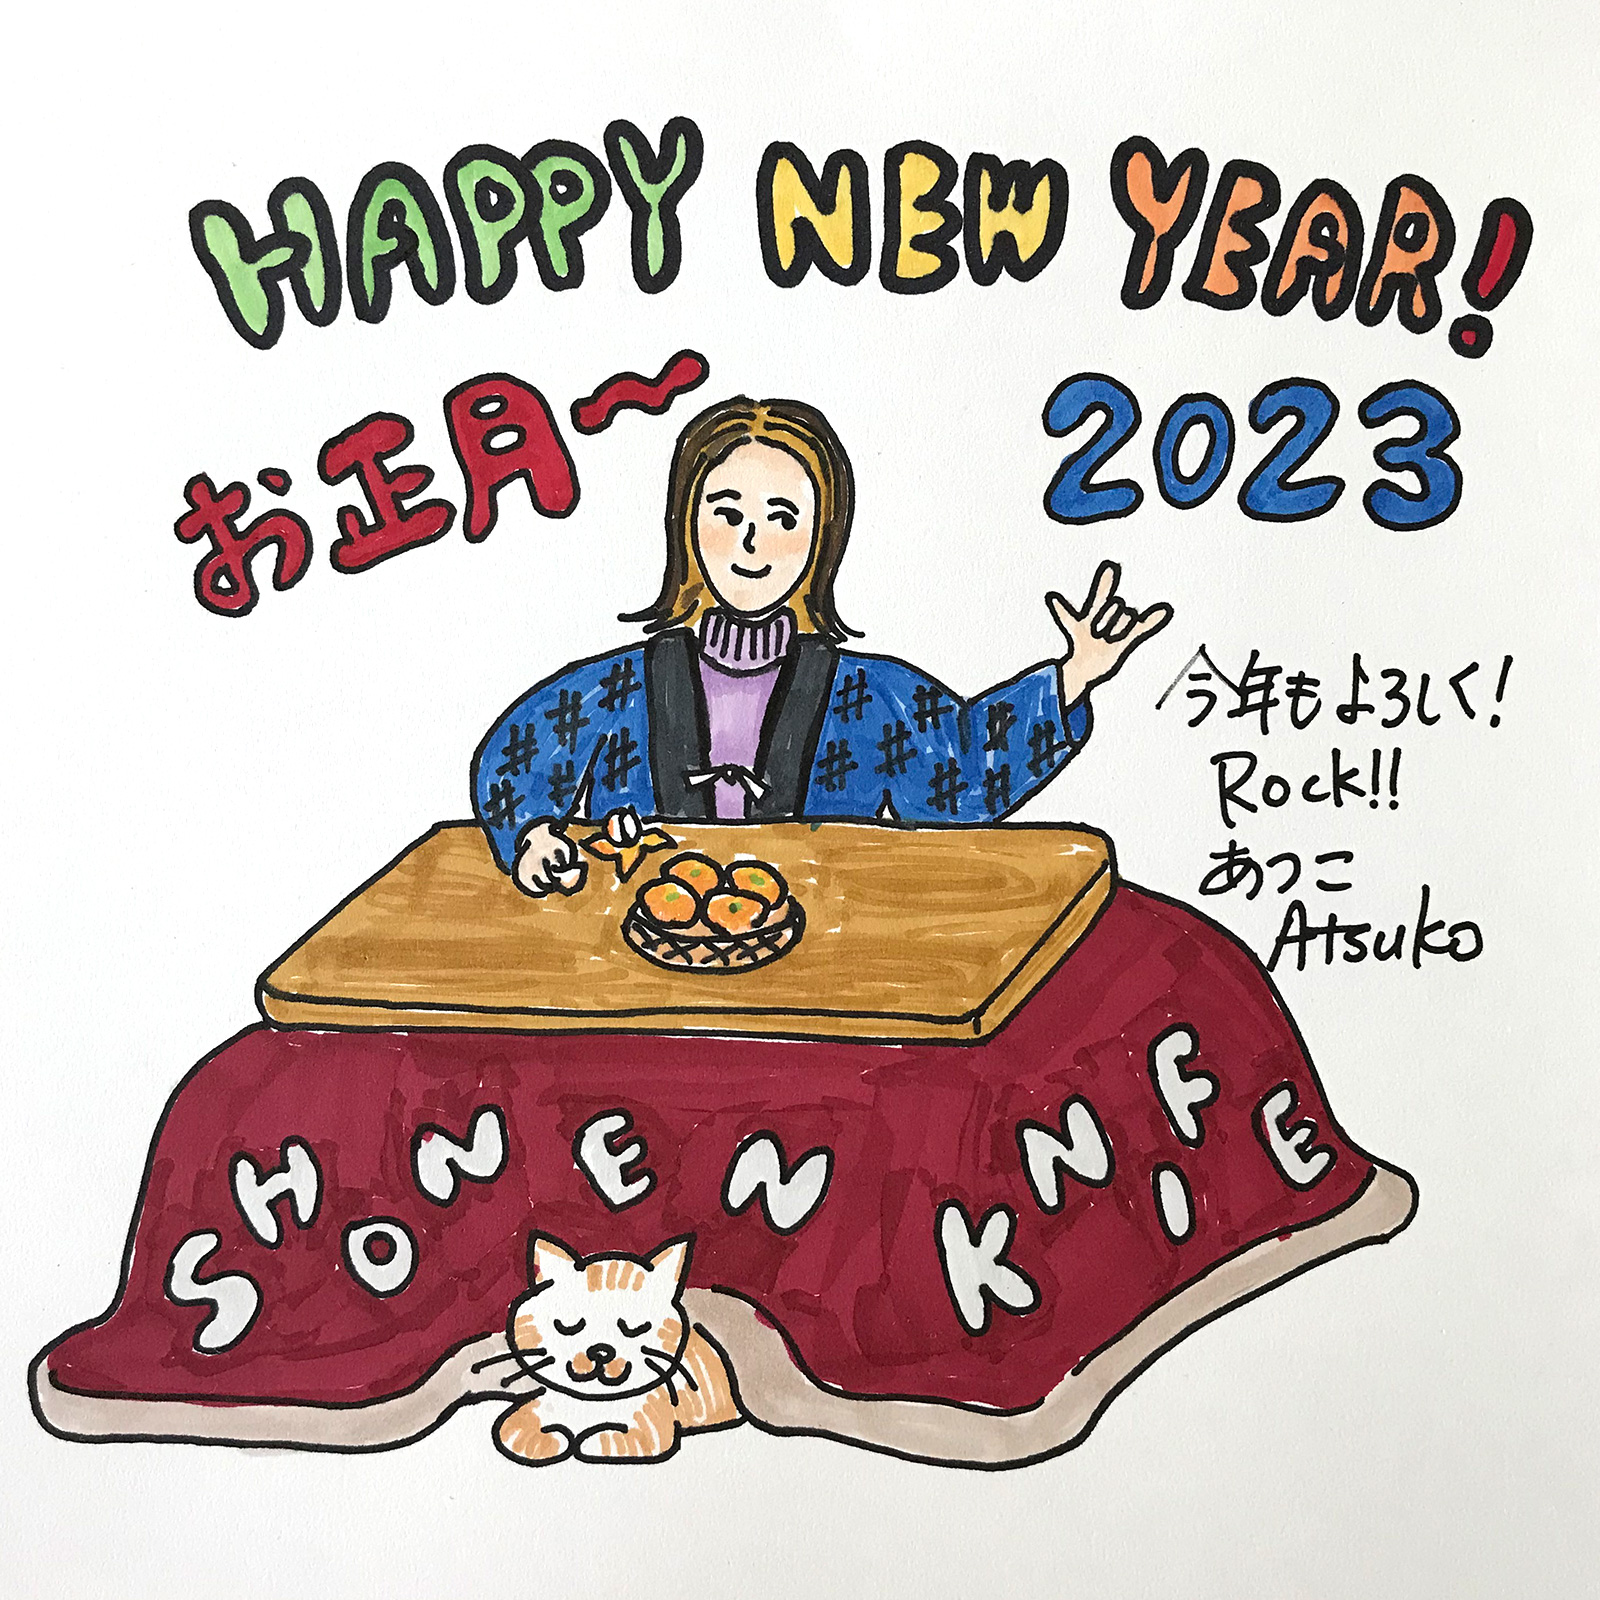 HAPPY NEW YEAR!
お正月〜
2023
今年もよろしく!
Rock!!
あつこ
Atsuko
SHONEN KNIFE